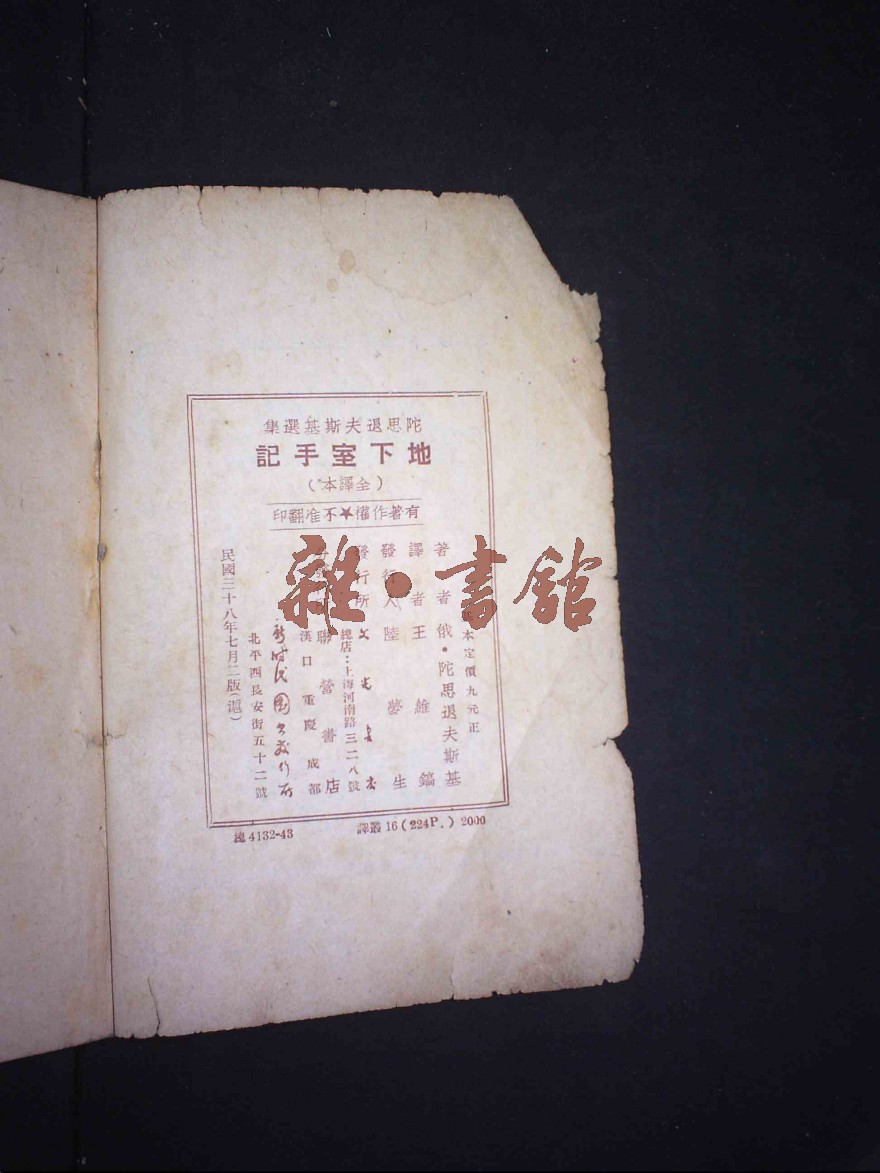 陀思退夫斯基選集
地下室手記
（全譯本）
有著作權★不准翻印
本定價九元正
著者 俄・陀思退夫斯基
譯者 王維鎬
發行人 陸夢生
發行所 文光書店
總店：上海河南路三二八號
聯營書店
漢口 重慶 成都
北平西長安街五十二號
民國三十八年七月二版（滬）
總4132-43
譯叢16(224P.) 2000
雜・書館